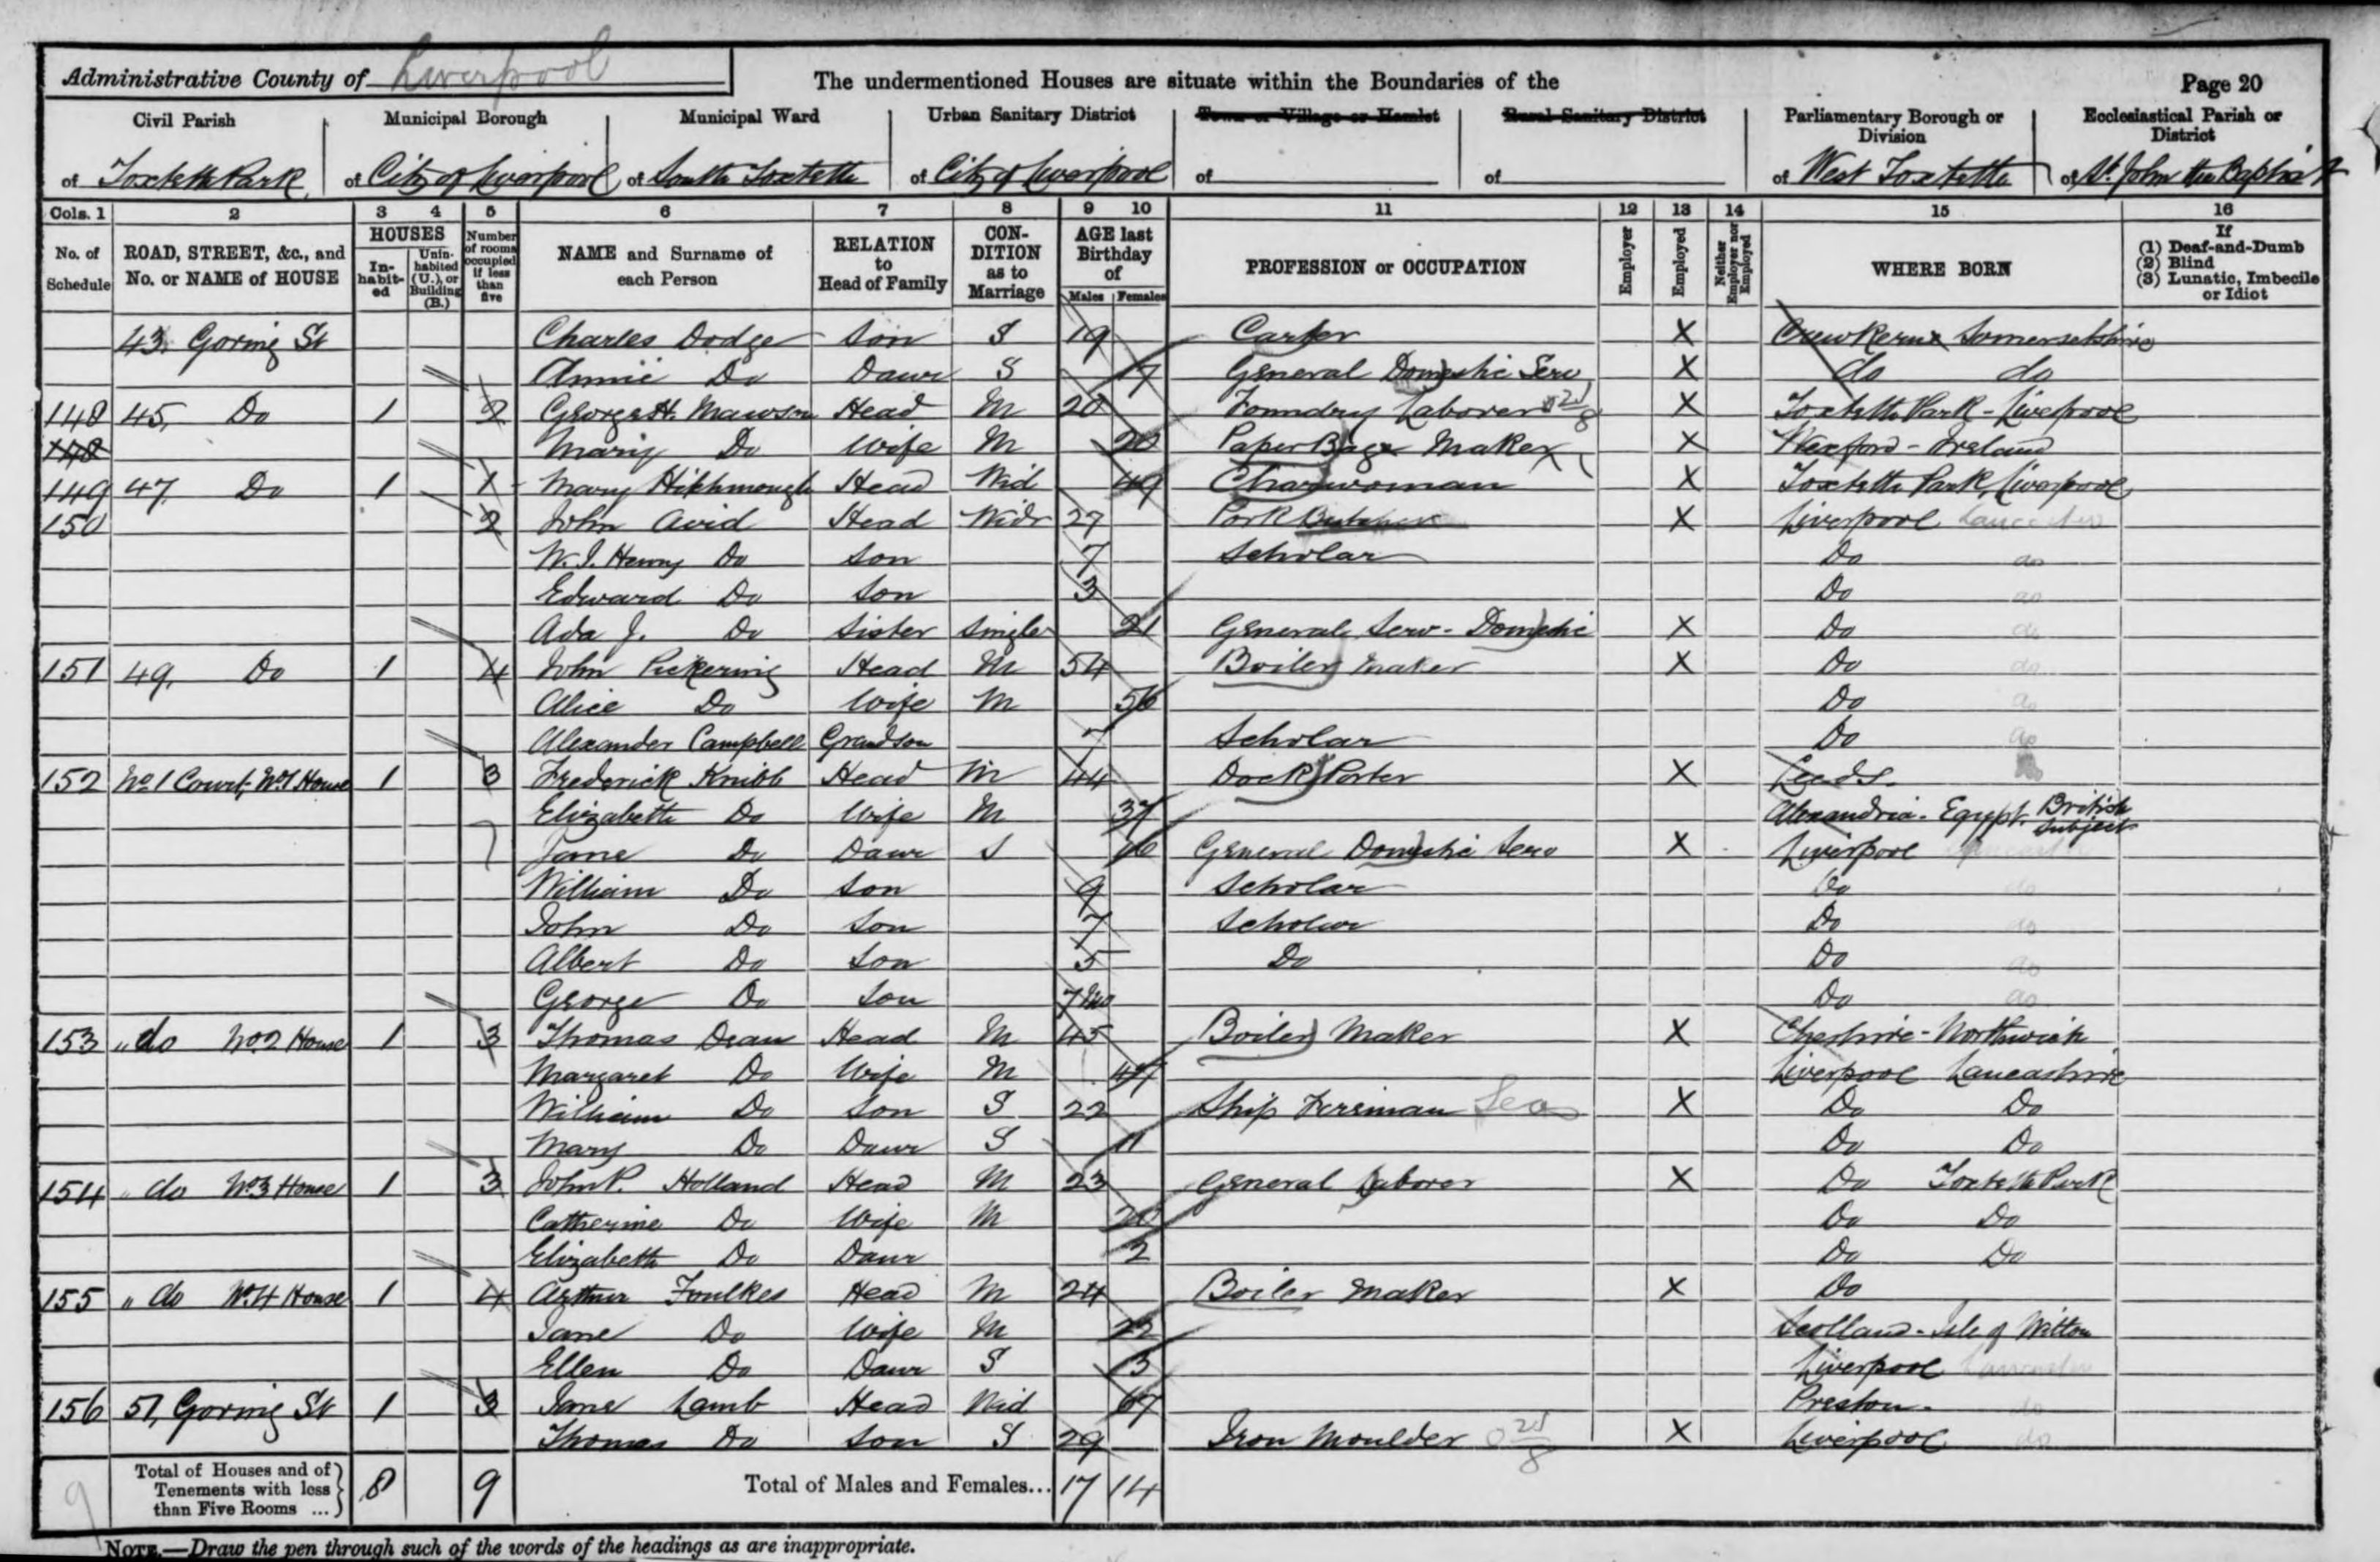 Administrative County of Liverpool
The undermentioned Houses are situate within the Boundaries of the
Page 20
Civil Parish of Toxteth Park
Municipal Borough of City of Liverpool
Municipal Ward of South Toxteth
Urban Sanitary District of City of Liverpool
Town or Village or Hamlet of
Rural Sanitary District of
Parliamentary Borough or Division of West Toxteth
Ecclesiastical Parish or District of St. John the Baptist
Cols. 1 2 3 4 5 6 7 8 9 10 11 12 13 14 15 16
No. of Schedule
ROAD, STREET, &c., and No. or NAME of HOUSE
HOUSES
Inhabited
Uninhabited (U.), or Building (B.)
Number of rooms occupied if less than five
NAME and Surname of each Person
RELATION to Head of Family
CONDITION as to Marriage
AGE last Birthday of
Males Females
PROFESSION or OCCUPATION
Employer
Employed
Neither Employer nor Employed
WHERE BORN
If
(1) Deaf-and-Dumb
(2) Blind
(3) Lunatic, Imbecile or Idiot
43, Goring St Charles Dodge Son S 19 Carter X Crewkerne Somersetshire
Annie Do Daur S 17 General Domestic Serv X do do
148 45, Do 1 2 George H. Mawson Head M 20 Foundry Laborer X Toxteth Park - Liverpool
148 Mary Do Wife M 20 Paper Bage Maker X Wexford - Ireland
149 47, Do 1 1 Mary Hikhmough Head Wid 49 Charwoman X Toxteth Park, Liverpool
150 2 John Avid Head Widr 27 Pork Butcher X Liverpool
W. J. Henry Do Son 7 Scholar Do do
Edward Do Son 3 Do do
Ada J. Do Sister Single 21 General Serv - Domestic X Do do
151 49, Do 1 4 John Pickering Head M 54 Boiler Maker X Do do
Alice Do Wife M 56 Do do
Alexander Campbell Grandson 7 Scholar Do do
152 No 1 Court, No 1 House 1 3 Frederick Knibb Head M 44 Dock Porter X Leeds.
Elizabeth Do Wife M 37 Alexandria - Egypt. British Subject
Jane Do Daur S 16 General Domestic Serv X Liverpool
William Do Son 9 Scholar Do do
John Do Son 7 Scholar Do do
Albert Do Son 5 Do Do do
George Do Son 7 Mo Do do
153 " do No 2 House 1 3 Thomas Dean Head M 45 Boiler Maker X Cheshire - Northwich
Margaret Do Wife M Liverpool Lancashire
William Do Son S 22 Ship Fireman Sea X Do Do
Mary Do Daur S 11 Do Do
154 " do No 3 House 1 3 John P. Holland Head M 23 General Laborer X Do Toxteth Park
Catherine Do Wife M 20 Do Do
Elizabeth Do Daur 2 Do Do
155 " do No. 4 House 1 4 Arthur Foulkes Head M 24 Boiler Maker X Do
Jane Do Wife M 22 Scotland - Isle of
Ellen Do Daur S 3 Liverpool
156 51, Goring St 1 3 Jane Lamb Head Wid 67 Preston. do
Thomas Do Son S 29 Iron Moulder X Liverpool do
9 Total of Houses and of Tenements with less than Five Rooms ... 8 9 Total of Males and Females... 17 14
NOTE.—Draw the pen through such of the words of the headings as are inappropriate.